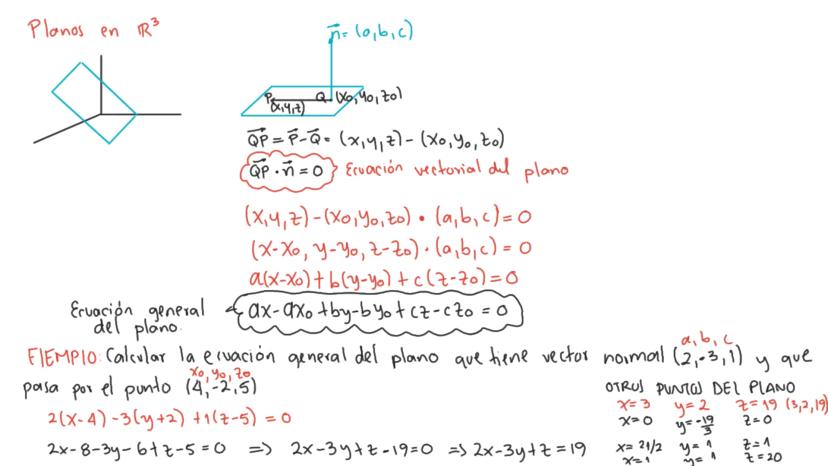 Planos en ℝ³
n⃗ = (a,b,c)
P (x,y,z)
Q (x₀,y₀,z₀)
QP⃗ = P⃗ - Q⃗ = (x,y,z) - (x₀,y₀,z₀)
QP⃗ · n⃗ = 0 Ecuación vectorial del plano
(x,y,z) - (x₀,y₀,z₀) • (a,b,c) = 0
(x-x₀, y-y₀, z-z₀) · (a,b,c) = 0
a(x-x₀) + b(y-y₀) + c(z-z₀) = 0
Ecuación general del plano.
ax - ax₀ + by - by₀ + cz - cz₀ = 0
a, b, c
EJEMPLO: Calcular la ecuación general del plano que tiene vector normal (2,-3,1) y que
x₀, y₀, z₀
pasa por el punto (4,-2,5)
2(x-4) - 3(y+2) + 1(z-5) = 0
2x-8-3y-6+z-5=0 => 2x-3y+z-19=0 => 2x-3y+z=19
OTROS PUNTOS DEL PLANO
x=3 y=2 z=19 (3,2,19)
x=0 y=-19/3 z=0
x=21/2 y=1 z=1
x=1 y=1 z=20